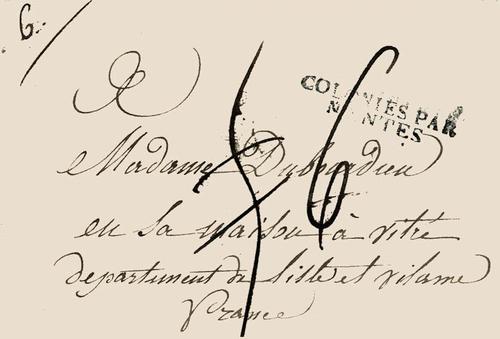 6.
COLONIES PAR
NANTES
6
A
Madame Dubourdieu
en sa maison à vitré
departement de lille et vilaine
france